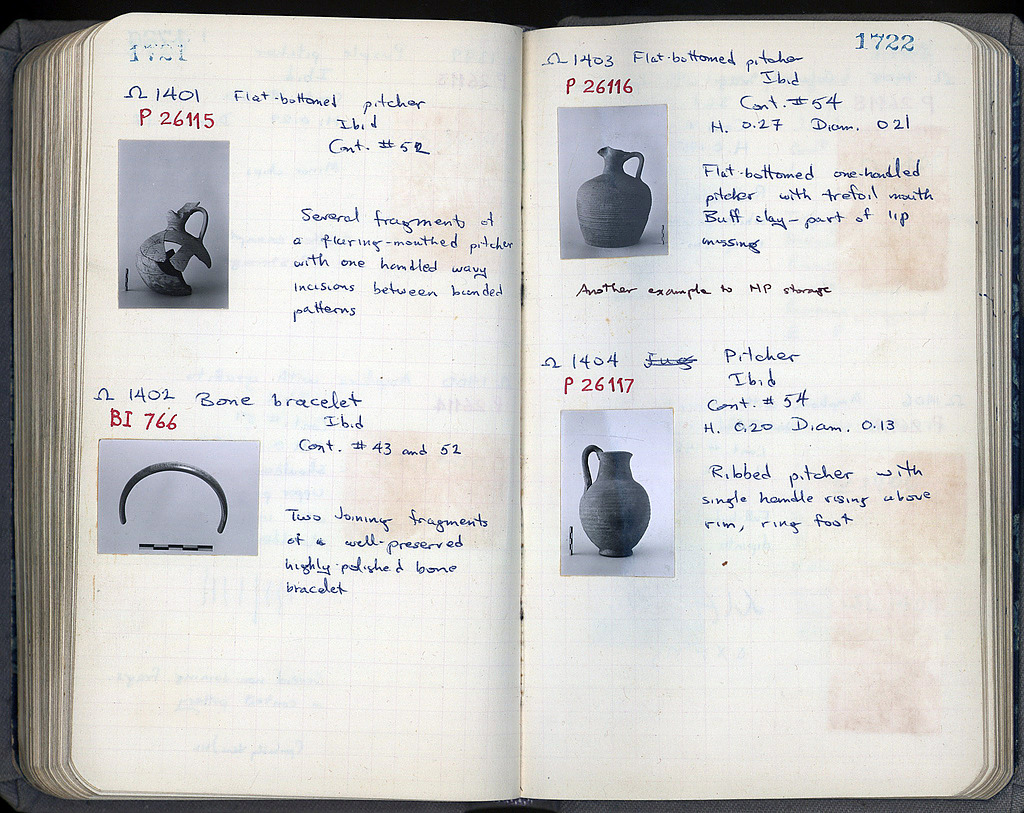 1721
Ω 1401 Flat-bottomed pitcher
P 26115
Ibid
Cont. # 52
Several fragments of
a flaring-mouthed pitcher
with one handled wavy
incisions between banded
patterns
Ω 1402 Bone bracelet
BI 766
Ibid
Cont. # 43 and 52
Two joining fragments
of a well-preserved
highly-polished bone
bracelet
1722
Ω 1403 Flat-bottomed pitcher
P 26116
Ibid
Cont. # 54
H. 0.27 Diam. 0.21
Flat-bottomed one-handled
pitcher with trefoil mouth
Buff clay - part of lip
missing
Another example to MP storage
Ω 1404 Jug Pitcher
P 26117
Ibid
Cont. # 54
H. 0.20 Diam. 0.13
Ribbed pitcher with
single handle rising above
rim, ring foot